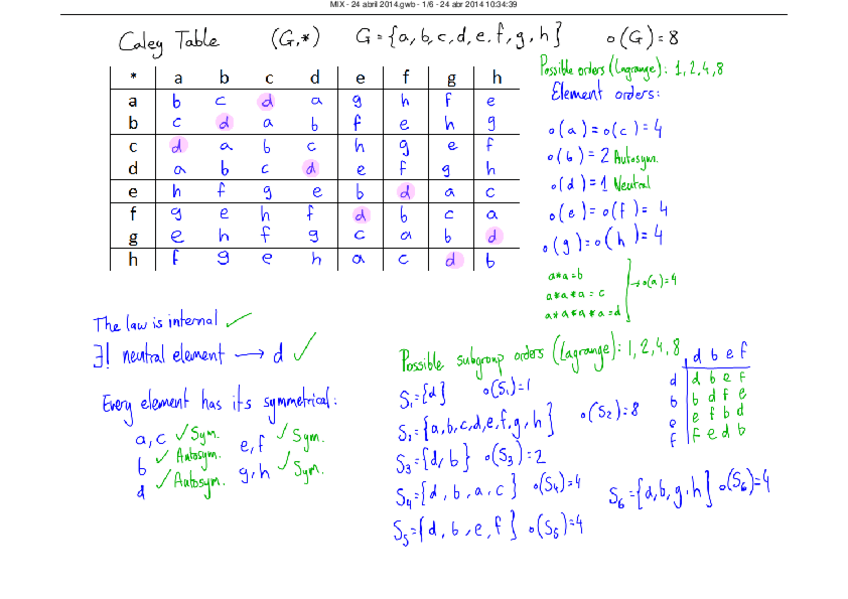 MIX - 24 abril 2014.gwb - 1/6 - 24 abr 2014 10:34:39
Caley Table (G,*) G={a,b,c,d,e,f,g,h} o(G)=8
Possible orders (Lagrange): 1,2,4,8
Element orders:
* a b c d e f g h
a b c d a g h f e
b c d a b f e h g
c d a b c h g e f
d a b c d e f g h
e h f g e b d a c
f g e h f d b c a
g e h f g c a b d
h f g e h a c d b
o(a)=o(c)=4
o(b)=2 Autosym.
o(d)=1 Neutral
o(e)=o(f)=4
o(g)=o(h)=4
a*a=b
a*a*a=c
a*a*a*a=d
→o(a)=4
The law is internal ✓
∃! neutral element → d ✓
Every element has its symmetrical:
a,c ✓ Sym.
b ✓ Autosym.
d ✓ Autosym.
e,f ✓ Sym.
g,h ✓ Sym.
Possible subgroup orders (Lagrange): 1,2,4,8
S₁={d} o(S₁)=1
S₂={a,b,c,d,e,f,g,h} o(S₂)=8
S₃={d,b} o(S₃)=2
S₄={d,b,a,c} o(S₄)=4
S₅={d,b,e,f} o(S₅)=4
S₆={d,b,g,h} o(S₆)=4
d b e f
d d b e f
b b d f e
e e f b d
f f e d b